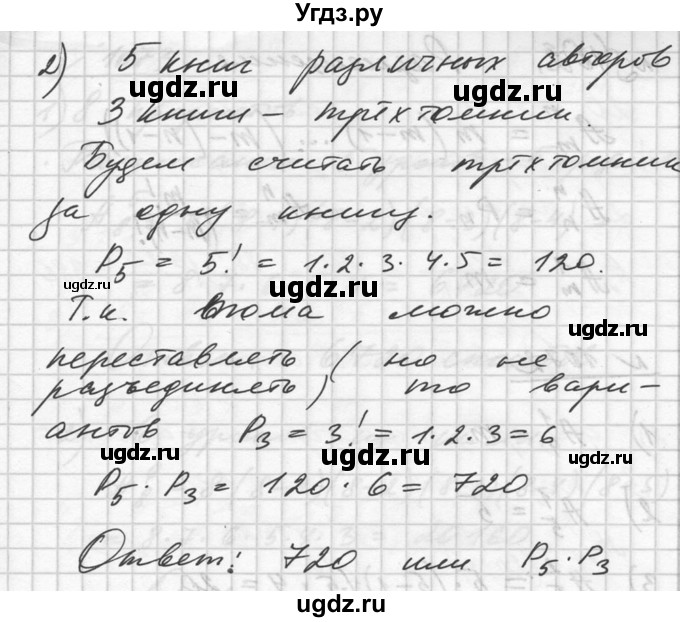 Угдз.ру
2) 5 книг различных авторов
3 книги – трёхтомник.
Будем считать трёхтомник
за одну книгу.
P₅ = 5! = 1·2·3·4·5 = 120.
Т.к. тома можно
переставлять (но не
разъединять) то вари-
антов P₃ = 3! = 1·2·3 = 6
P₅·P₃ = 120·6 = 720
Ответ: 720 или P₅·P₃
ugdz.ru
ugdz.ru
ugdz.ru
ugdz.ru
ugdz.ru
ugdz.ru
ugdz.ru
ugdz.ru
ugdz.ru
ugdz.ru